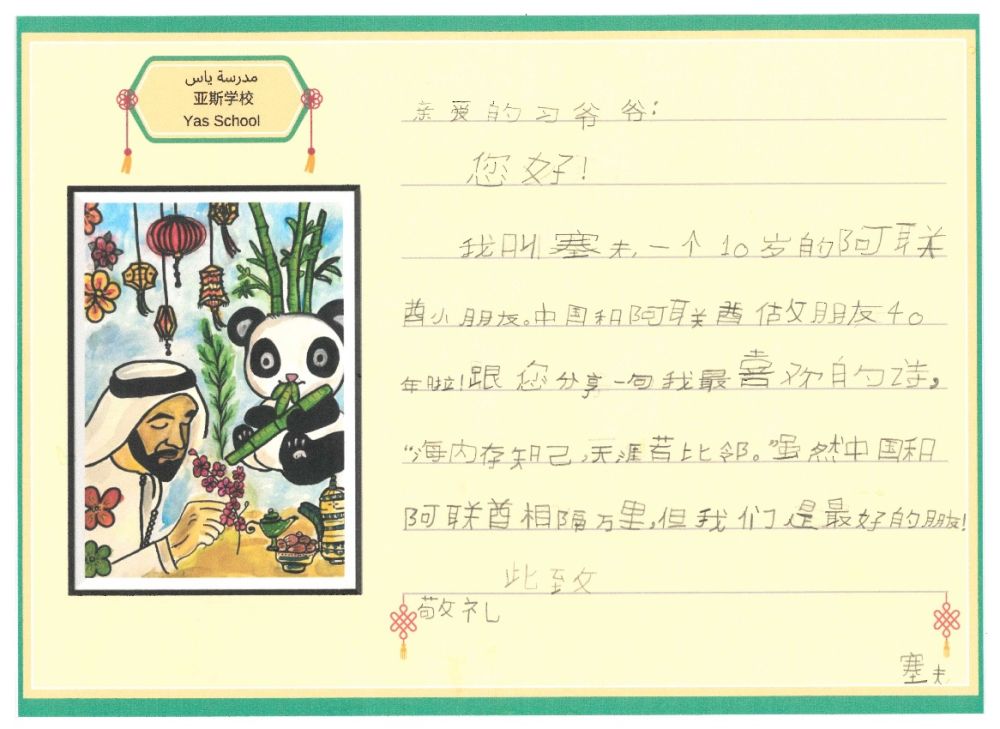 مدرسة ياس
亚斯学校
Yas School
亲爱的习爷爷:
您好!
我叫塞夫,一个10岁的阿联
酋小朋友。中国和阿联酋估攵朋友40
年啦!跟您分享一句我最喜欢的诗,
“海内存知己,天涯若比邻。”虽然中国和
阿联酋相隔万里,但我们是最好的朋友!
此至攵
敬礼
塞夫